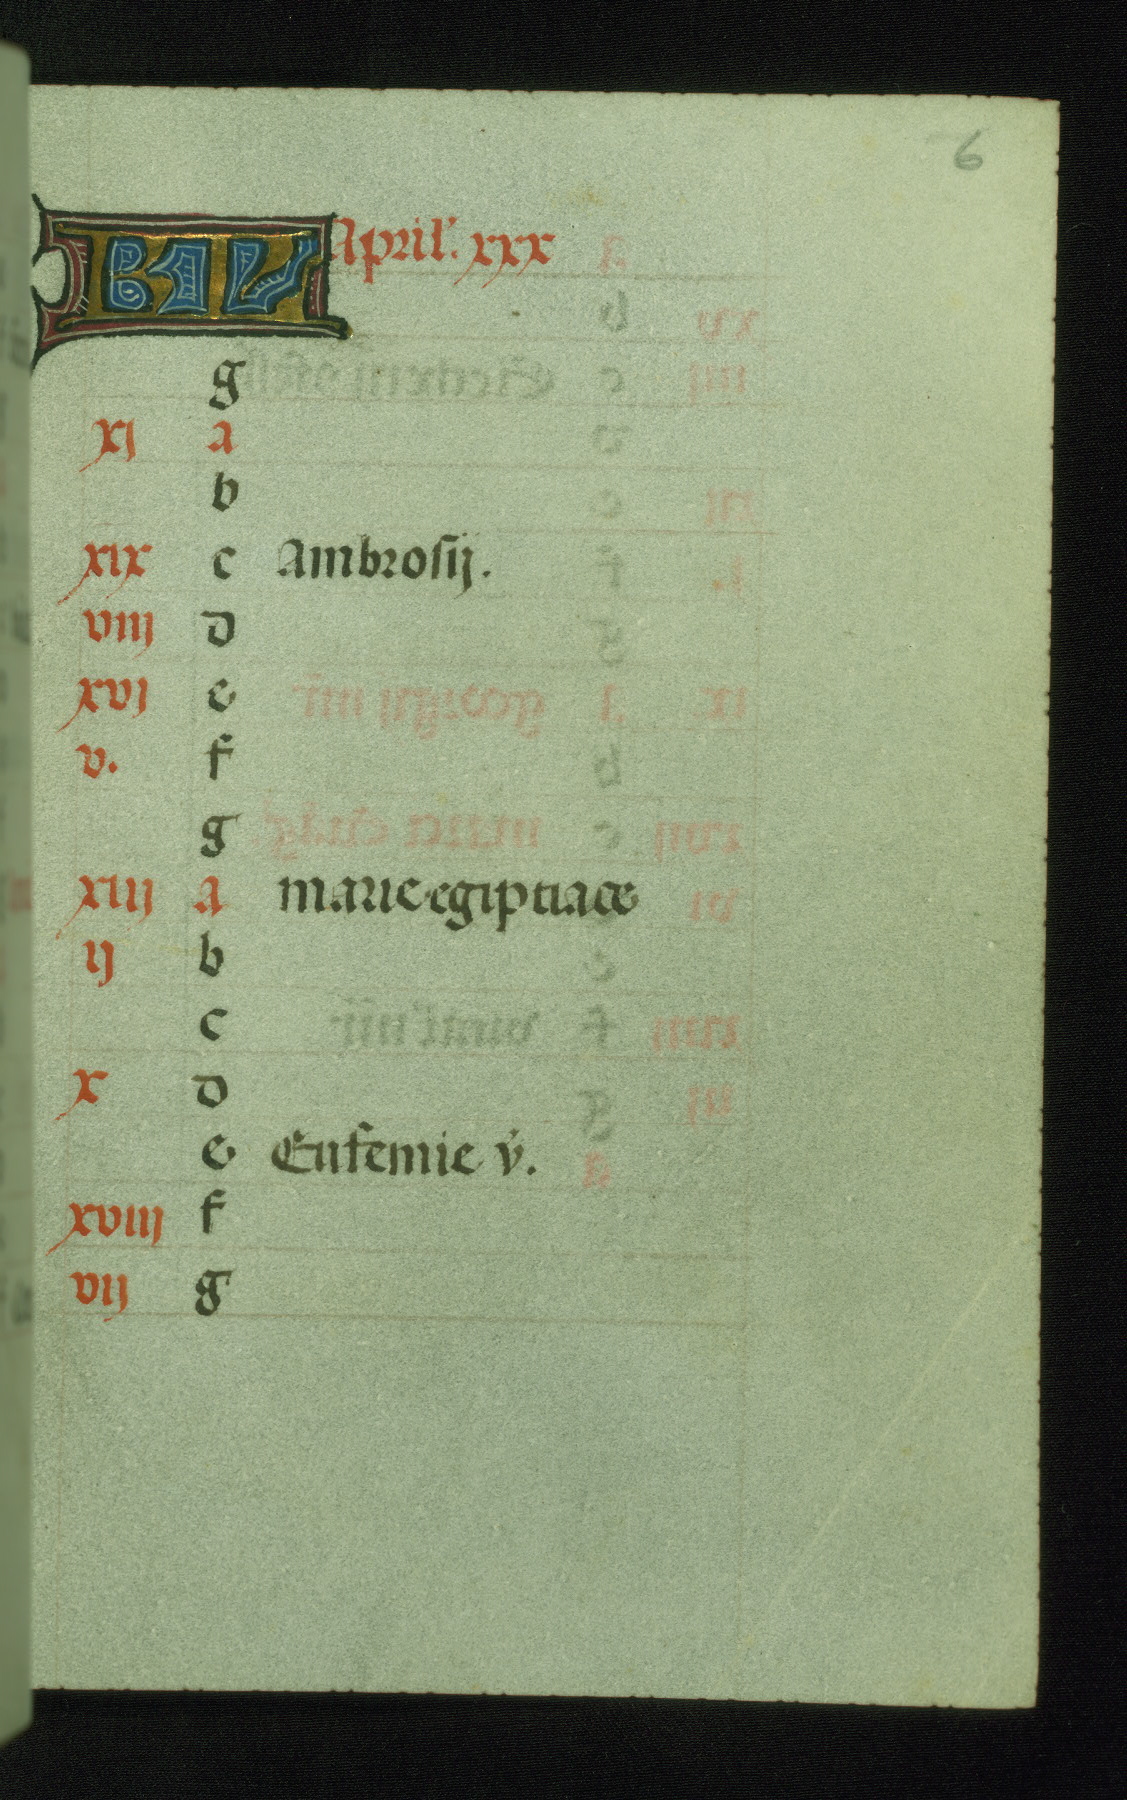 6
KL Aprilʼ. xxx
g
xj a
b
xix c Ambrosij.
viij d
xvj e
v. f
g
xiij a marie egiptiace
ij b
c
x d
e Eufemie v̍.
xviij f
vij g